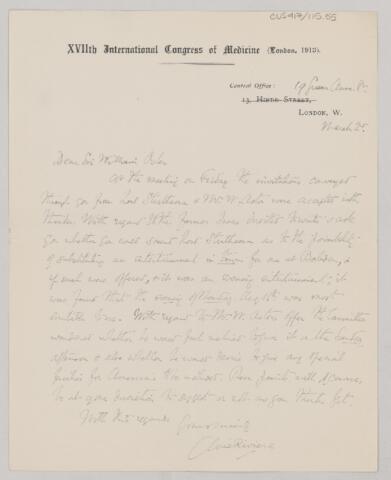 CUS417/115.55
XVIIth International Congress of Medicine (London, 1913).
Central Office:
19 Queen Anne St.
13, Hinde Street,
London, W.
March 25
Dear Sir William Osler
At the meeting on Friday the invitations conveyed
through you from Lord Strathcona & Mr W. Astor were accepted with
thanks. With regard to the former I was directed to ask
you whether you would sound Lord Strathcona as to the possibility
of substituting an entertainment in Town for one at
if such were offered, & it was an evening entertainment; it
was found that the evening of Monday Aug 11th was most
suitable. With regard to Mr W. Astor's offer the Committee
wondered whether he would feel inclined to give it on the Sunday
afternoon & also whether he would desire to give any special
facilities for Americans to be invited. These points will of course
be at your discretion to suggest or not as you think fit.
With kind regards
Yours sincerely
Clive Riviere